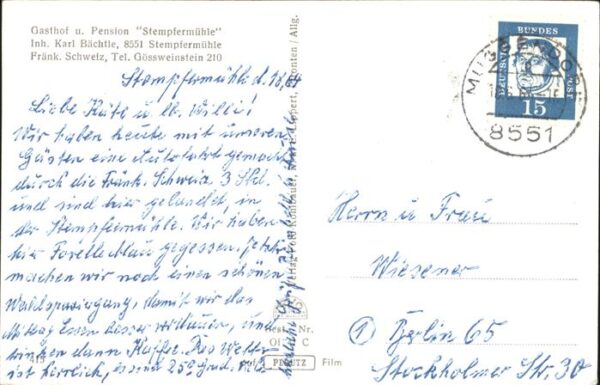 Gasthof u. Pension "Stempfermühle"
Inh. Karl Bächtle, 8551 Stempfermühle
Fränk. Schweiz, Tel. Gössweinstein 210
Stempfermühle d. 18.
Liebe Käte u. lb. Willi!
Wir haben heute mit unseren
Gästen eine Autofahrt gemacht
durch die Fränk. Schweiz, 3 Std.
und sind hier gelandet, in
der Stempfermühle. Wir haben
hier Forelle blau gegessen. Jetzt
machen wir noch einen schönen
Waldspaziergang, damit wir das
Mittag Essen besser verdauen, und
trinken dann Kaffee. Das Wetter
ist herrlich, es sind 25° Grad.
DEUTSCHE BUNDESPOST
15
MUGGENDORF
8551
Herrn u Frau
Wiesener
1 Berlin 65
Stockholmer Str. 30
Nr.
C
PERUTZ Film